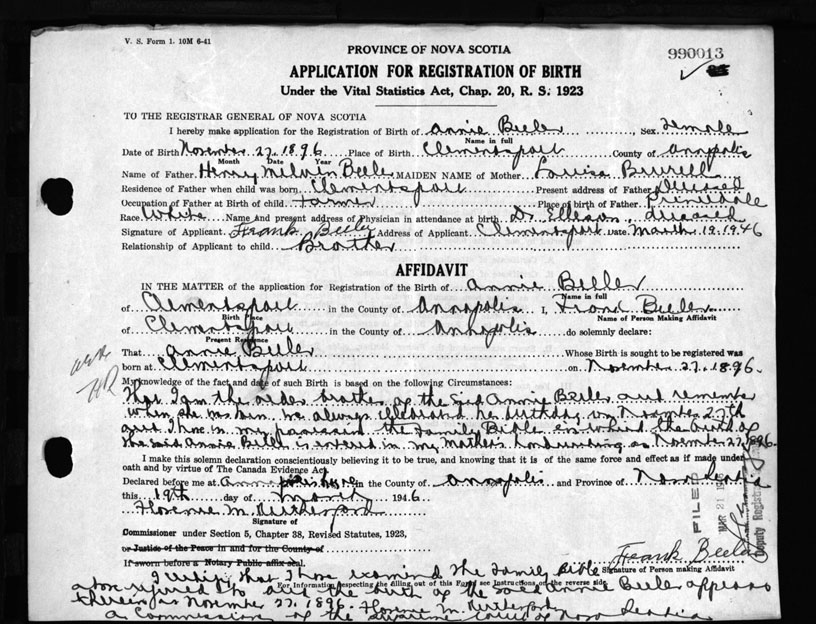 V. S. Form 1. 10M 6-41
PROVINCE OF NOVA SCOTIA
990013
APPLICATION FOR REGISTRATION OF BIRTH
Under the Vital Statistics Act, Chap. 20, R. S. 1923
TO THE REGISTRAR GENERAL OF NOVA SCOTIA
I hereby make application for the Registration of Birth of Annie Beeler, Sex Female
Name in full
Date of Birth November 27, 1896 Place of Birth Clementsport County of Annapolis
Month Date Year
Name of Father Henry Melvin Beeler MAIDEN NAME of Mother Louisa Burrell
Residence of Father when child was born Clementsport Present address of Father Deceased
Occupation of Father at Birth of child Farmer Place of birth of Father Princedale
Race White Name and present address of Physician in attendance at birth Dr. Ellison, deceased
Signature of Applicant Frank Beeler Address of Applicant Clementsport Date March 19, 1946
Relationship of Applicant to child Brother
AFFIDAVIT
IN THE MATTER of the application for Registration of the Birth of Annie Beeler
Name in full
of Clementsport in the County of Annapolis I, Frank Beeler
Birth Place Name of Person Making Affidavit
of Clementsport in the County of Annapolis do solemnly declare:
Present Residence
That Annie Beeler Whose Birth is sought to be registered was
born at Clementsport on November 27, 1896.
My knowledge of the fact and date of such Birth is based on the following Circumstances:
That I am the older brother of the said Annie Beeler and remember
when she was born. We always celebrated her birthday on November 27th
and I have in my possession the Family Bible in which the birth of
the said Annie Beeler is entered in my Mother's handwriting as November 27, 1896.
I make this solemn declaration conscientiously believing it to be true, and knowing that it is of the same force and effect as if made under
oath and by virtue of The Canada Evidence Act.
Declared before me at in the County of Annapolis and Province of Nova Scotia
this 19th day of March 1946
Florence M. Rutherford
Signature of
Commissioner under Section 5, Chapter 38, Revised Statutes, 1923,
or Justice of the Peace in and for the County of
If sworn before a Notary Public affix seal.
FILED
MAR 21
Deputy Registrar
Frank Beeler
Signature of Person making Affidavit
For Information respecting the filling out of this Form see Instructions on the reverse side.
I certify that I have examined the Family Bible
above referred to and the birth of the said Annie Beeler appears
therein as November 27, 1896. Florence M. Rutherford
A Commissioner of the Supreme Court of Nova Scotia